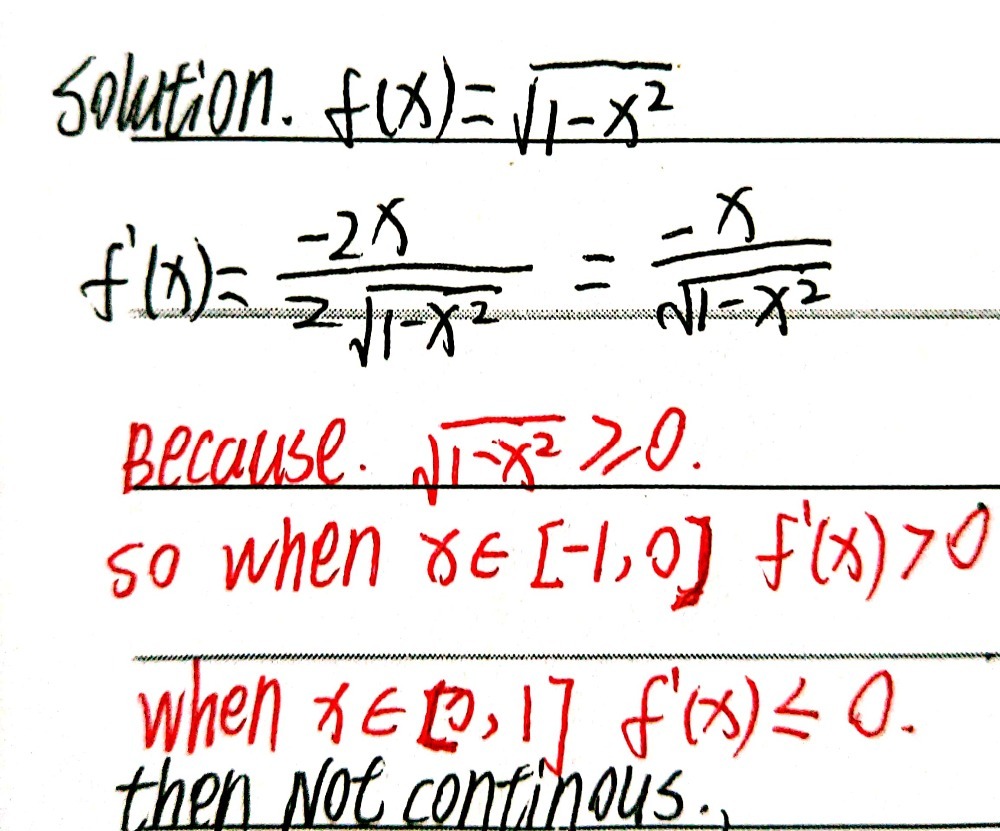 Solution. f(x)=√(1-x²)
f'(x)= -2x/(2√(1-x²)) = -x/√(1-x²)
Because. √(1-x²) ≥0.
so when x∈[-1,0] f'(x)>0
when x∈[0,1] f'(x)≤0.
then Not continous.,